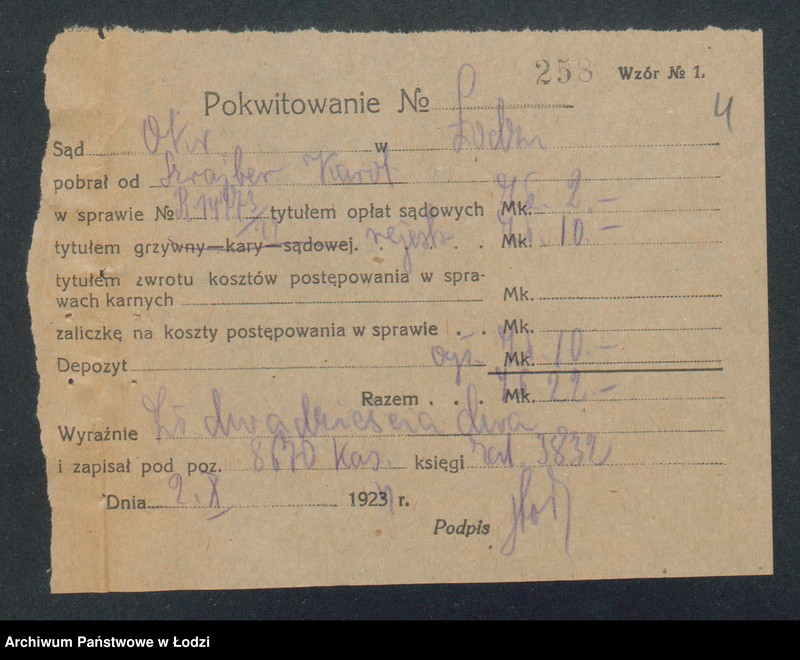 258 Wzór № 1.
4
Pokwitowanie №
Sąd Okr w Łodzi
pobrał od Szrajber Karol
w sprawie № R 14973 tytułem opłat sądowych Mk. Zł. 2.—
tytułem grzywny—kary—sądowej. rejestr . . Mk. Zł. 10.—
tytułem zwrotu kosztów postępowania w spra-
wach karnych Mk.
zaliczkę na koszty postępowania w sprawie . . Mk.
Depozyt ogł. Mk. Zł. 10.—
Razem . . . Mk. Zł. 22.—
Wyraźnie Zł dwadzieścia dwa
i zapisał pod poz. 8670 Kas. księgi 3832
Dnia 2. X 1924 r.
Podpis
Archiwum Państwowe w Łodzi